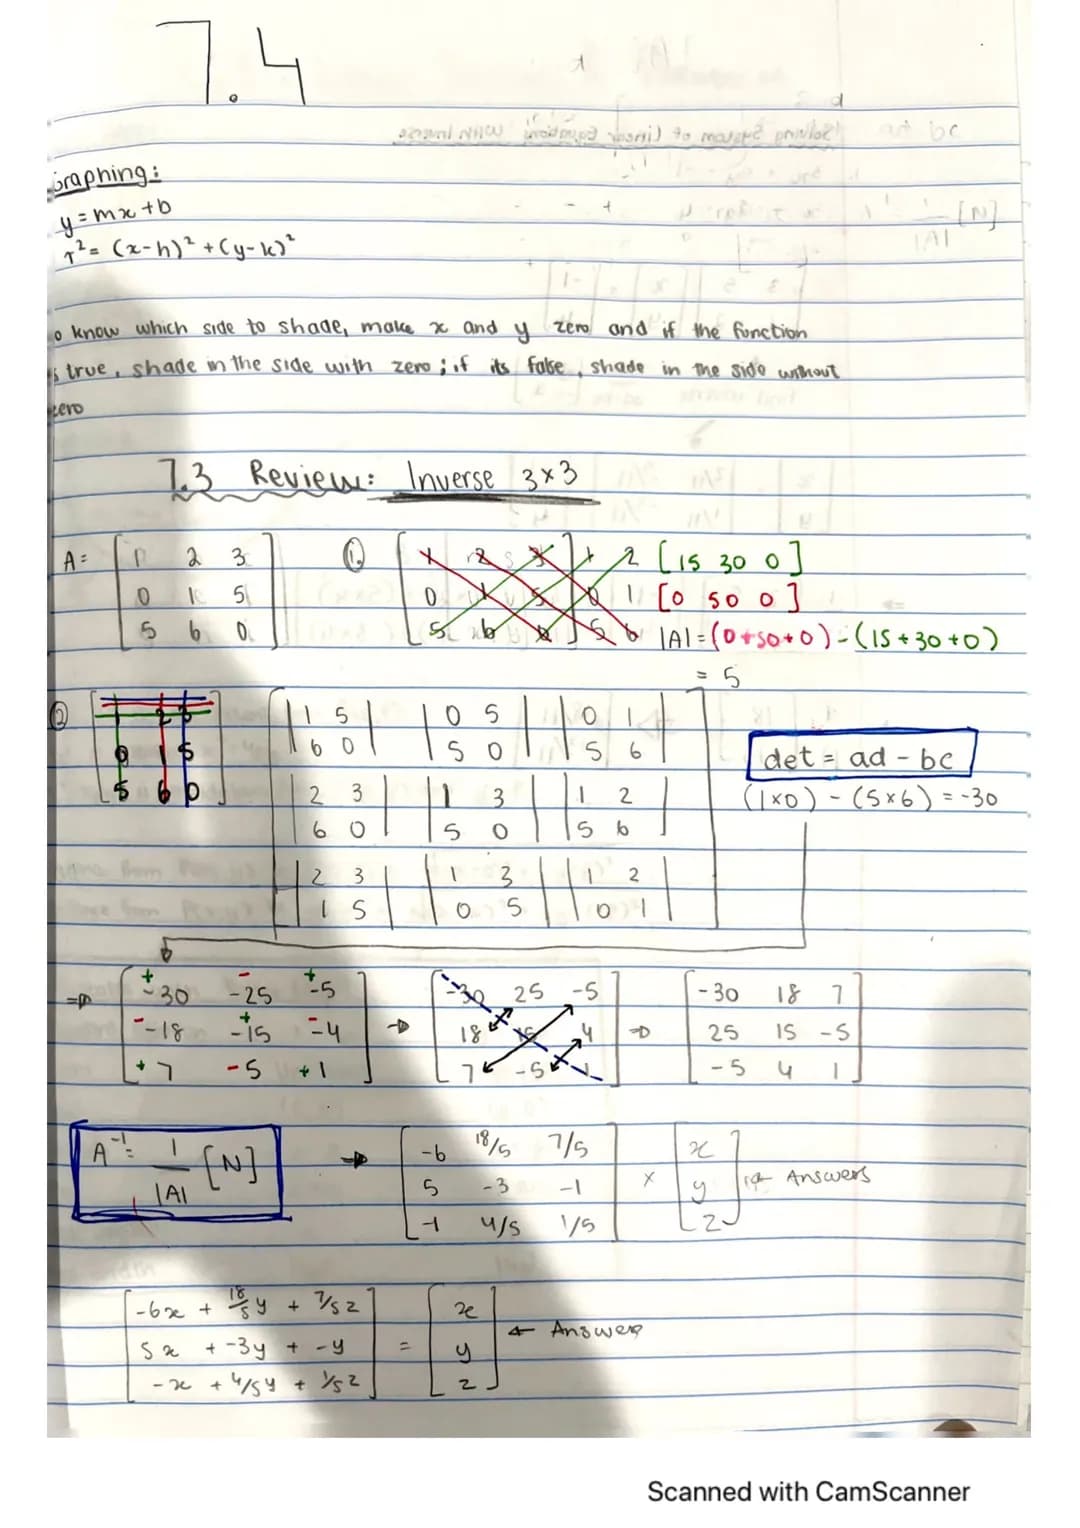 7.4
Graphing:
y = mx + b
r² = (x-h)² + (y-k)²
o know which side to shade, make x and y zero and if the function
s true, shade in the side with zero; if its false, shade in the side without
zero
7.3 Review: Inverse 3x3
A = [ 1 2 3
0 1 5
5 6 0 ]
①
1 2 3 1 2 [15 30 0]
0 1 5 0 1 [0 50 0]
5 6 0 5 6 |A| = (0+50+0) - (15+30+0)
= 5
②
1 2 3
0 1 5
5 6 0
|1 5| |0 5| |0 1|
|6 0| |5 0| |5 6|
|2 3| |1 3| |1 2|
|6 0| |5 0| |5 6|
|2 3| |1 3| |1 2|
|1 5| |0 5| |0 1|
det = ad - bc
(1x0) - (5x6) = -30
⇒ + -30 - -25 + -5
- -18 + -15 - -4
+ 7 - -5 + 1
→ -30 25 -5
18 15 4
7 -5 1
⇒ -30 18 7
25 15 -5
-5 4 1
A⁻¹ = 1/|A| [N]
→ [ -6 18/5 7/5
5 -3 -1
-1 4/5 1/5 ] x [ x
y
z ] ← Answers
[ -6x + 18/5 y + 7/5 z
5x + -3y + -y
-x + 4/5 y + 1/5 z ] = [ x
y
z ] ← Answer
Scanned with CamScanner